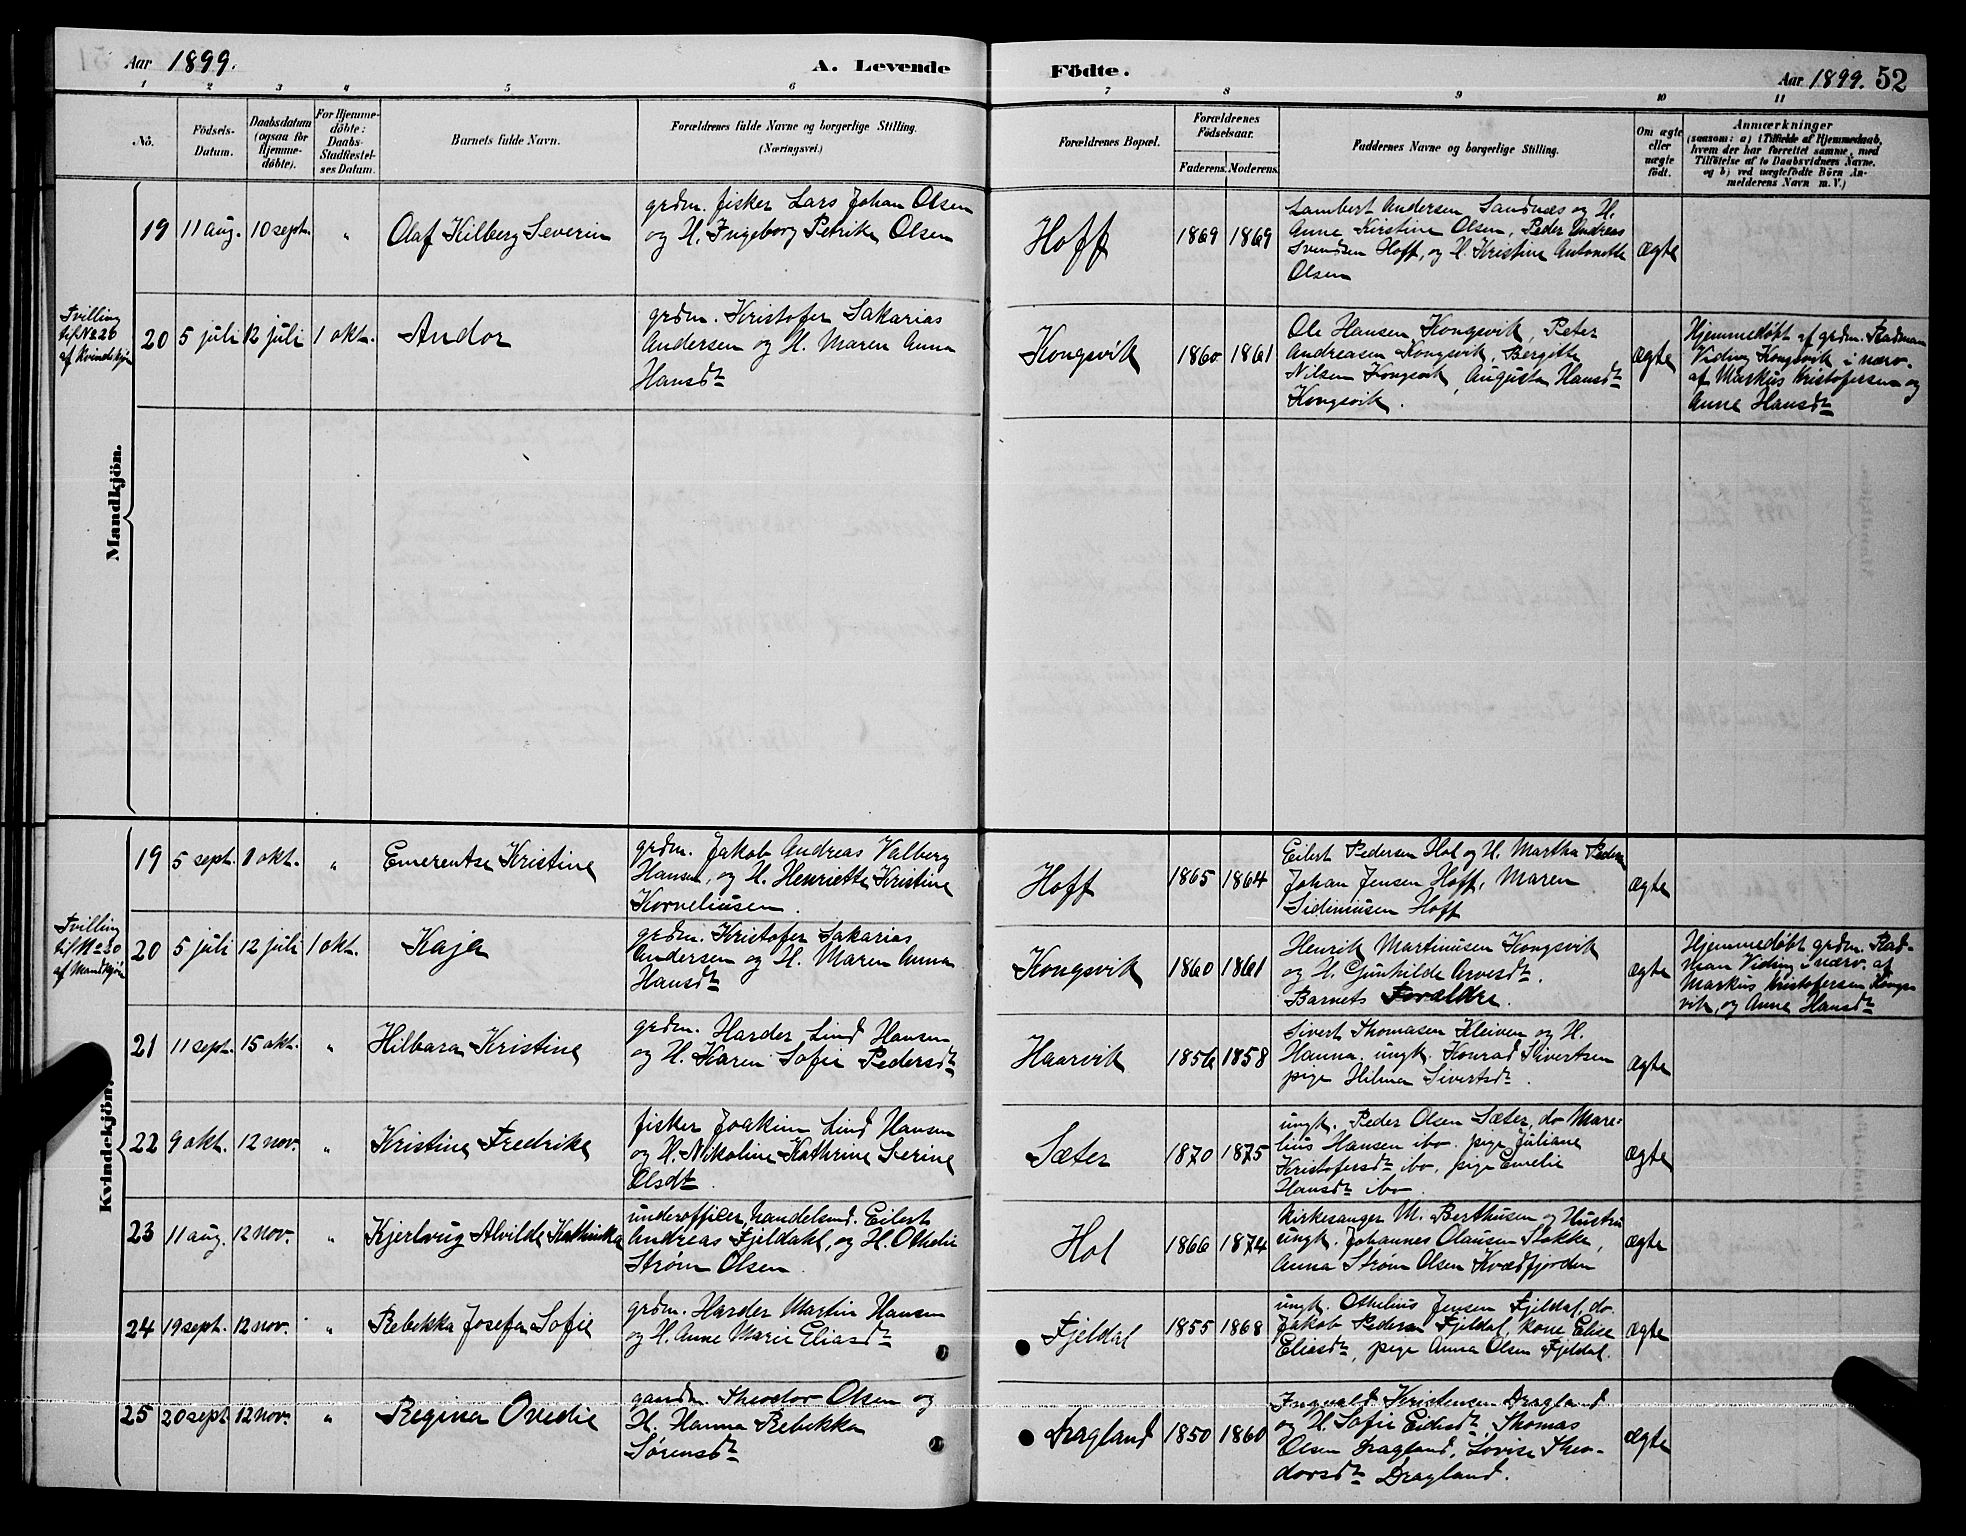 Aar 1899. A. Levende Födte. Aar 1899. 52
1 2 3 4 5 6 7 8 9 10 11
No.
Födsels-Datum.
Daabsdatum (ogsaa for Hjemme-döbte).
For Hjemme-döbte: Daabs-Stadfæstel-ses Datum.
Barnets fulde Navn.
Forældrenes fulde Navne og borgerlige Stilling.
(Næringsvei.)
Forældrenes Bopæl.
Forældrenes Födselsaar.
Faderens. Moderens.
Faddernes Navne og borgerlige Stilling.
Om ægte eller uægte födt.
Anmærkninger
(saasom: a) i Tilfælde af Hjemmedaab,
hvem der har forrettet samme, med
Tilföielse af to Daabsvidners Navne.
og b) ved uægtefödte Börn An-
melderens Navn m. V.)
Mandkjön.
19 11 aug. 10 sept. " Olaf Hilberg Severin
grdm. fisker Lars Johan Olsen
og H. Ingeborg Petrika Olsen
Hoff 1869 1869
Lambert Andersen Sandnæs og H.
Anne Kirstine Olsen, Peder Andreas
Svendsen Hoff, og H. Kristine Antonette
Olsen
ægte
Tvilling
til No 20
af Kvindekjön
20 5 juli 12 juli 1 okt. Andor
grdm. Kristofer Sakarias
Andersen og H. Maren Anna
Hansdt
Kongsvik 1860 1861
Ole Hansen Kongsvik, Peter
Andreasen Kongsvik, Bergitte
Nilsen Kongsvik, Augusta Hansdt
Kongsvik.
ægte
Hjemmedøbt af grdm. Radman
Viding Kongsvik i nærv.
af Markus Kristofersen og
Anne Hansdt
Kvindekjön.
19 5 sept. 8 okt. " Emerentse Kristine
grdm. Jakob Andreas Valberg
Hansen, og H. Henriette Kristine
Korneliusen.
Hoff 1865 1864
Eilert Pedersen Hol og H. Martha Peders
Johan Jensen Hoff, Maren
Sidiniusen Hoff
ægte
Tvilling
til No 20
af Mandkjön
20 5 juli 12 juli 1 okt. Kaja
grdm. Kristofer Sakarias
Andersen og H. Maren Anna
Hansdt
Kongsvik 1860 1861
Henrik Martinusen Kongsvik
og H. Gjunhilde Arvesdt.
Barnets Forældre.
ægte
Hjemmedøbt grdm. Rad-
man Viding i nærv. af
Markus Kristofersen Kongs
vik, og Anne Hansdt
21 11 sept. 15 okt. " Hilbara Kristine
grdm. Harder Lind Hansen
og H. Karen Sofie Pedersdt
Haarvik 1856 1858
Sivert Thomasen Kleiven og H.
Hanna. ungk. Konrad Sivertsen
pige Hilma Sivertsdt.
ægte
22 9 okt. 12 nov. " Kristine Fredrike
fisker Joakim Lind Hansen
og H. Nikoline Kathrine Serine
Olsdt.
Sæter 1870 1875
ungk. Peder Olsen Sæter, do Mare-
lius Hansen ibo. pige Juliane
Kristofersdt ibo, pige Emelie
Hansdt ibo.
ægte
23 11 aug. 12 nov. " Kjerlvug Alvilde Kathinka
underofficer, handelsmd. Eilert
Andreas Fjeldahl, og H. Othelie
Strøm Olsen.
Hol 1866 1874
Kirkesanger M. Berthusen og Hustru
ungk. Johannes Olausen Stokke,
Anna Strøm Olsen Kvædfjorden
ægte
24 19 sept. 12 nov. " Rebekka Josefa Sofie
grdm. Harder Martin Hansen
og H. Anne Marie Eliasdt
Fjeldal 1855 1868
ungk. Othelius Jensen Fjeldal, do.
Jakob Pedersen Fjeldal, kone Elise
Eliasdt, pige Anna Olsen Fjeldal.
ægte
25 20 sept. 12 nov. " Regina Ovedie
gaardm Theodor Olsen og
H. Hanna Rebekka
Sørensdt
Dragland 1850 1860
Ingvald Kristensen Dragland
og H. Sofie Eidisdt, Thomas
Olsen Dragland, Lovise Theo-
dorsdt Dragland.
ægte